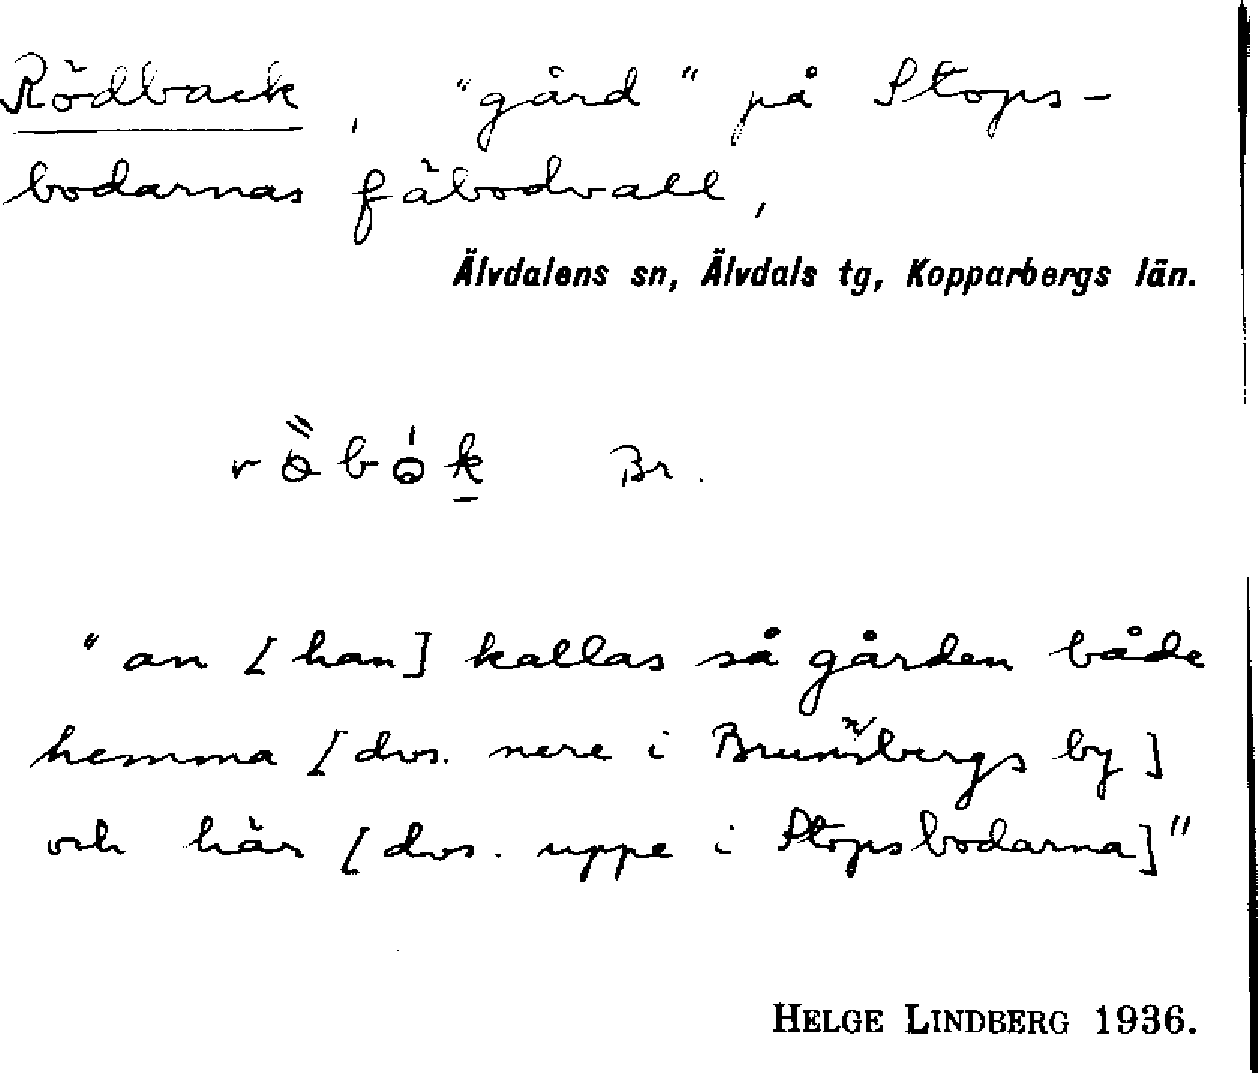 Rödback, "gård" på Stops-
bodarnas fäbodvall,
Älvdalens sn, Älvdals tg, Kopparbergs län.
Br.
"an [han] kallas så gården både
hemma [dvs. nere i Brunnbergs by]
och här [dvs. uppe i Stopsbodarna]"
HELGE LINDBERG 1936.